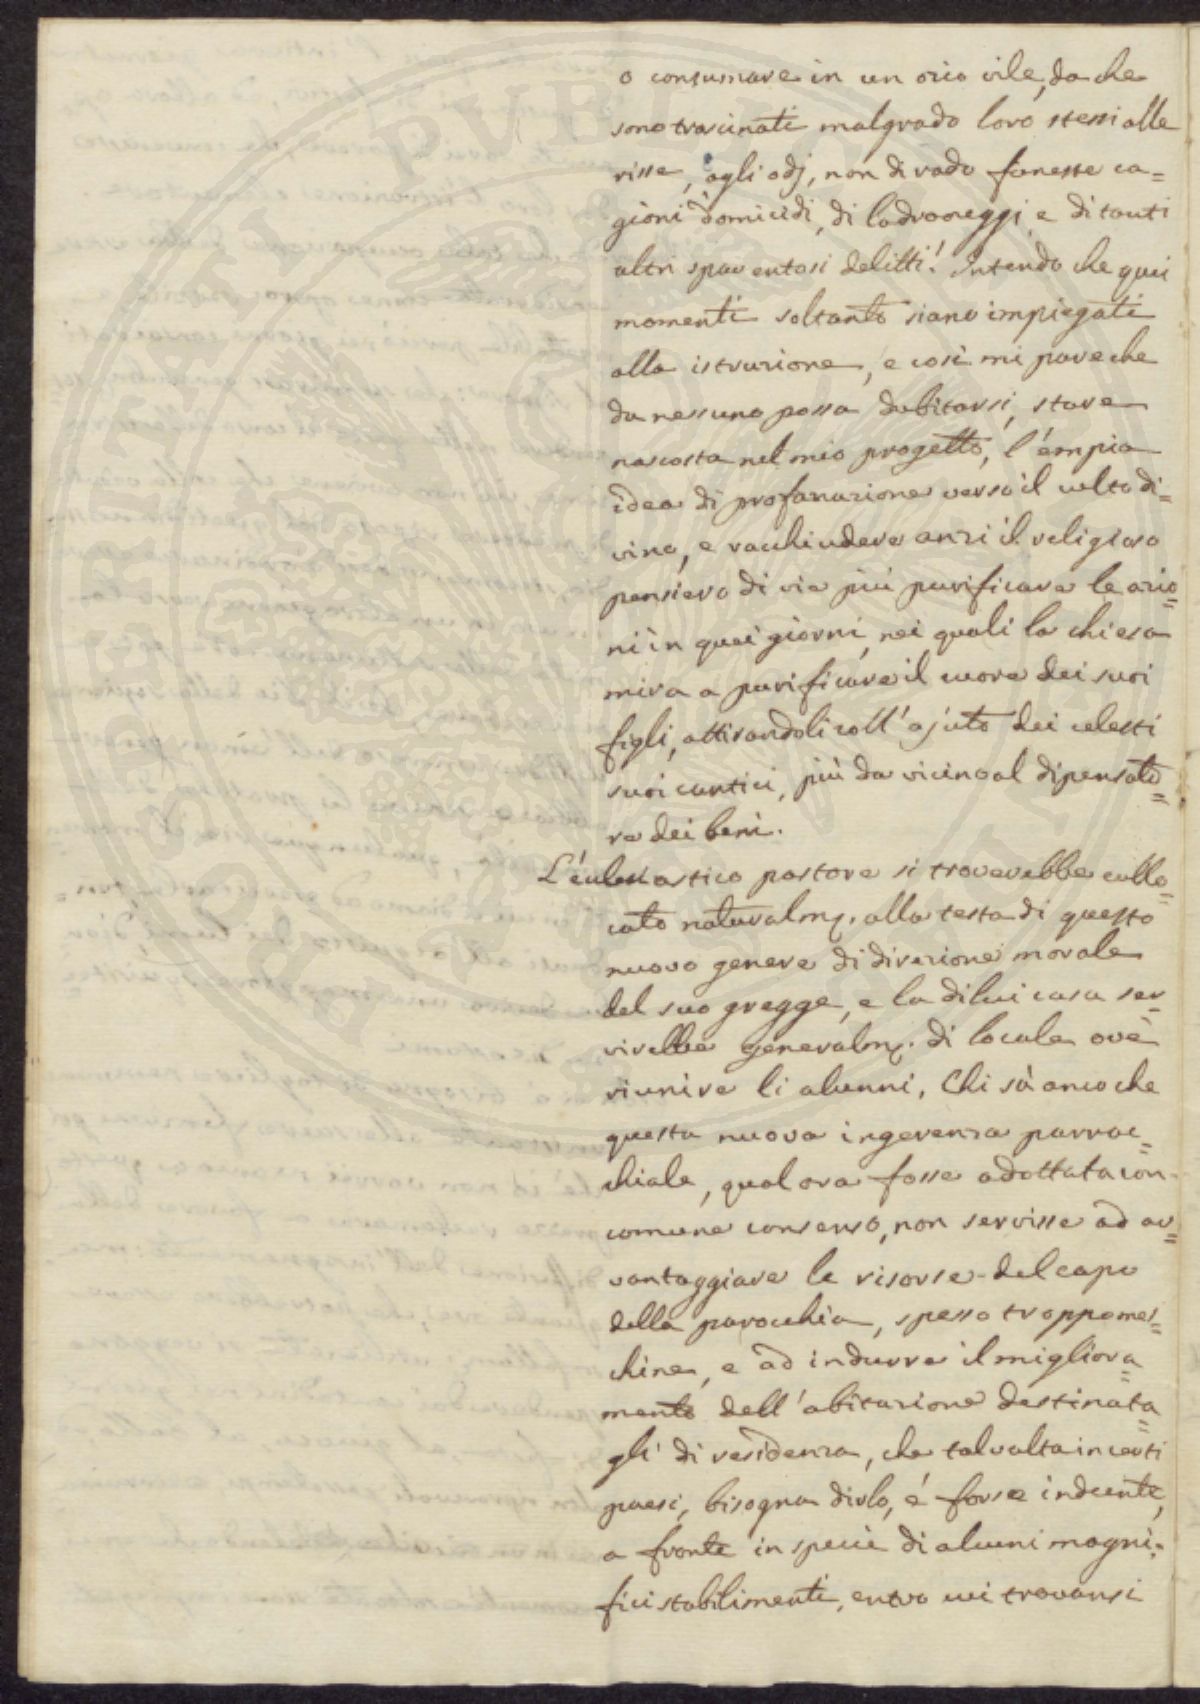 o consumare in un ozio vile, da che
sono trascinati malgrado loro stessi alle
risse, agli odj, non di rado funeste ca=
gioni d'omicidi, di ladroneggi, e di tanti
altri spaventosi delitti! Intendo che quei
momenti soltanto siano impiegati
alla istruzione, e così mi pare che
da nessuno possa dubitarsi, stare
nascosta nel mio progetto, l'empia
idea di profanazione verso il culto di=
vino, e racchiudere anzi il religioso
pensiero di vie più purificare le azio=
ni in quei giorni, nei quali la chiesa
mira a purificare il cuore dei suoi
figli, attirandoli coll'ajuto dei celesti
suoi cantici, più da vicino al dipensato=
re dei beni.
L'éclesiastico pastore si troverebbe collo=
cato naturalm. alla testa di questo
nuovo genere di direzione morale
del suo gregge, e la di lui casa ser=
virebbe generalm. di locale ove
riunire li alunni, Chi sà anco che
questa nuova ingerenza parroc=
chiale, qualora fosse adottata con
comune consenso, non servisse ad av=
vantaggiare le risorse del capo
della parocchia, spesso troppo mes=
chine, e ad indurre il migliora=
mento dell'abitazione destinata=
gli di residenza, che talvolta in certi
paesi, bisogna dirlo, é forse indecente,
a fronte in specie di alcuni magni=
fici stabilimenti, entro cui trovansi